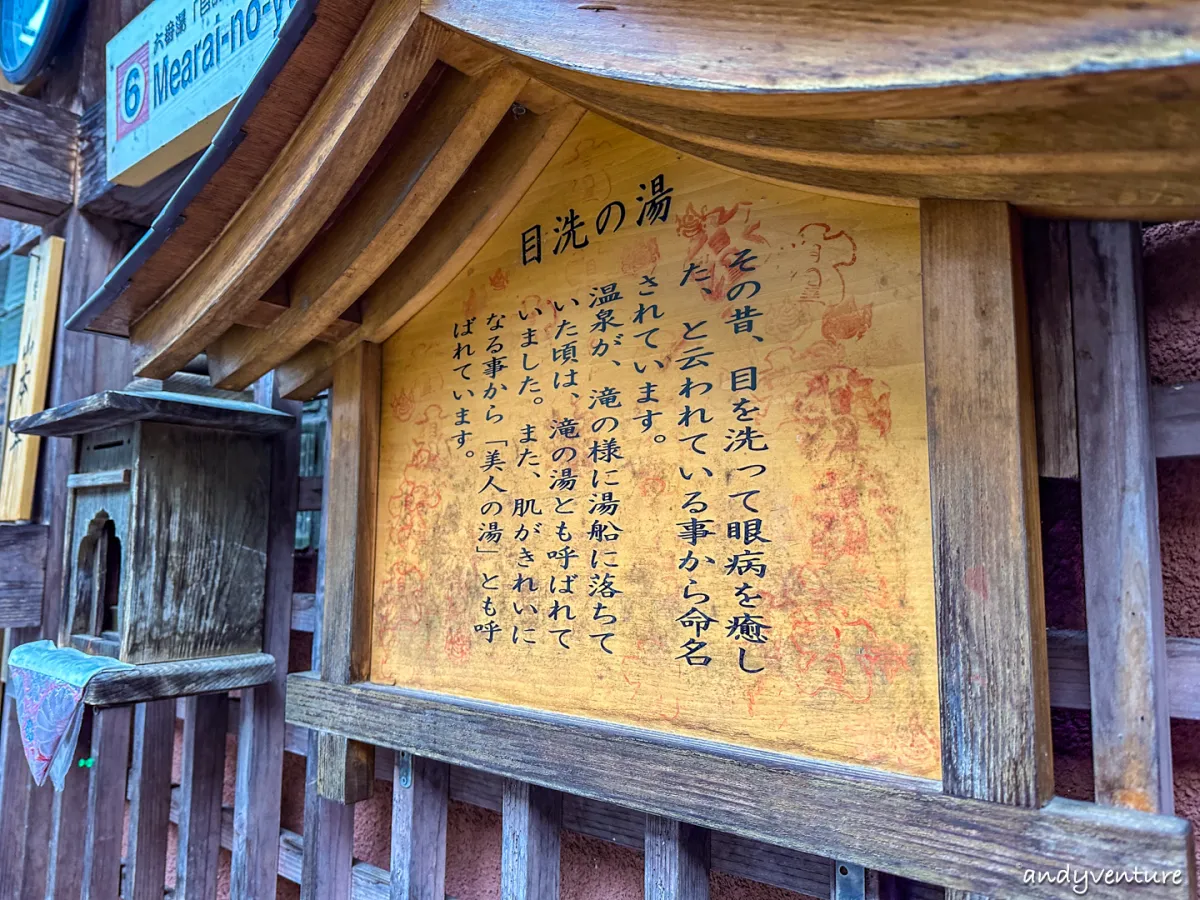 六番湯「目洗
6 Mearai-no-y
目洗の湯
その昔、目を洗つて眼病を癒し
た、と云われている事から命名
されています。
温泉が、滝の様に湯船に落ちて
いた頃は、滝の湯とも呼ばれて
いました。また、肌がきれいに
なる事から「美人の湯」とも呼
ばれています。
andyventure